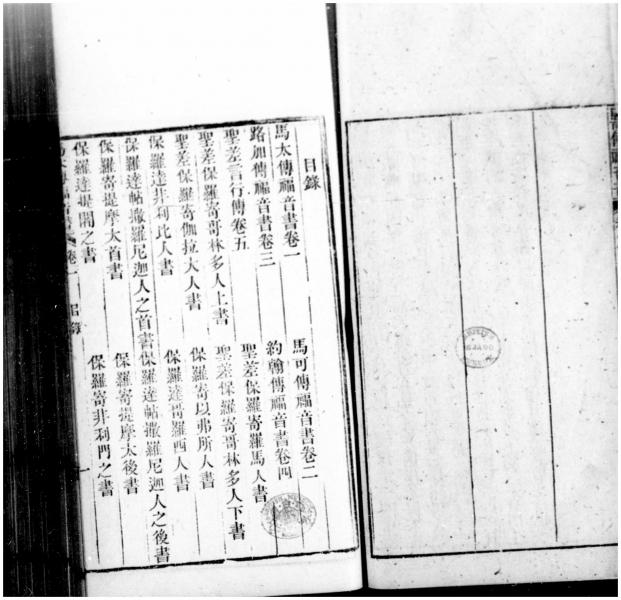 目錄
馬太傳福音書卷一
馬可傳福音書卷二
路加傳福音書卷三
約翰傳福音書卷四
聖差言行傳卷五
聖差保羅寄羅馬人書
聖差保羅寄哥林多人上書
聖差保羅寄哥林多人下書
聖差保羅寄伽拉大人書
保羅寄以弗所人書
保羅達非利比人書
保羅達哥羅西人書
保羅達帖撒羅尼迦人之首書
保羅達帖撒羅尼迦人之後書
保羅寄提摩太首書
保羅寄提摩太後書
保羅達提閙之書
保羅寄非利門之書